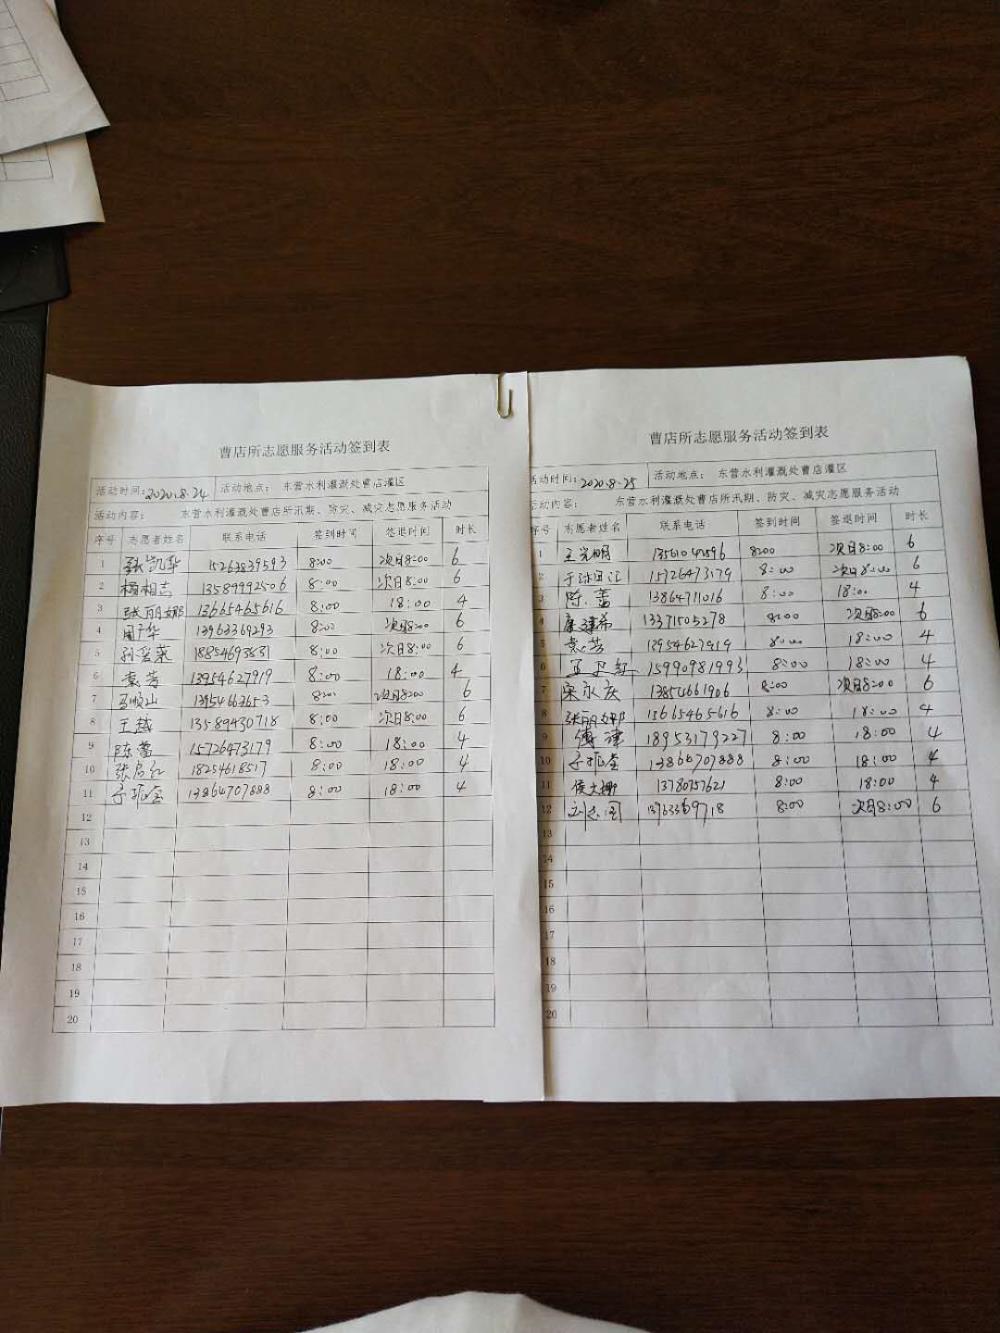 曹店所志愿服务活动签到表
活动时间: 2020.8.24 活动地点: 东营水利灌溉处曹店灌区
活动内容: 东营水利灌溉处曹店所汛期、防灾、减灾志愿服务活动
序号 志愿者姓名 联系电话 签到时间 签退时间 时长
1 张凯华 15263839593 8:00 次日8:00 6
2 杨相吉 13589992506 8:00 次日8:00 6
3 张丽娜 13665465616 8:00 18:00 4
4 周广华 13963369293 8:00 次日8:00 6
5 孙爱菜 18854693831 8:00 次日8:00 6
6 袁芳 13954627919 8:00 18:00 4
7 孟顺山 13954663653 8:00 次日8:00 6
8 王越 13589430718 8:00 次日8:00 6
9 陈蕾 15726473179 8:00 18:00 4
10 张启红 18254618517 8:00 18:00 4
11 13864707888 8:00 18:00 4
12
13
14
15
16
17
18
19
20
曹店所志愿服务活动签到表
活动时间: 2020.8.25 活动地点: 东营水利灌溉处曹店灌区
活动内容: 东营水利灌溉处曹店所汛期、防灾、减灾志愿服务活动
序号 志愿者姓名 联系电话 签到时间 签退时间 时长
1 王光明 8:00 次日8:00 6
2 15726473179 8:00 次日8:00 6
3 陈蕾 13864711016 8:00 18:00 4
4 康建希 13371505278 8:00 次日8:00 6
5 袁芳 13954627919 8:00 18:00 4
6 孟卫红 15990981993 8:00 18:00 4
7 宋永庆 13854661906 8:00 次日8:00 6
8 张丽娜 13665465616 8:00 18:00 4
9 傅津 18953179227 8:00 18:00 4
10 13864707888 8:00 18:00 4
11 侯文娜 13780757621 8:00 18:00 4
12 刘志国 13963369718 8:00 次日8:00 6
13
14
15
16
17
18
19
20